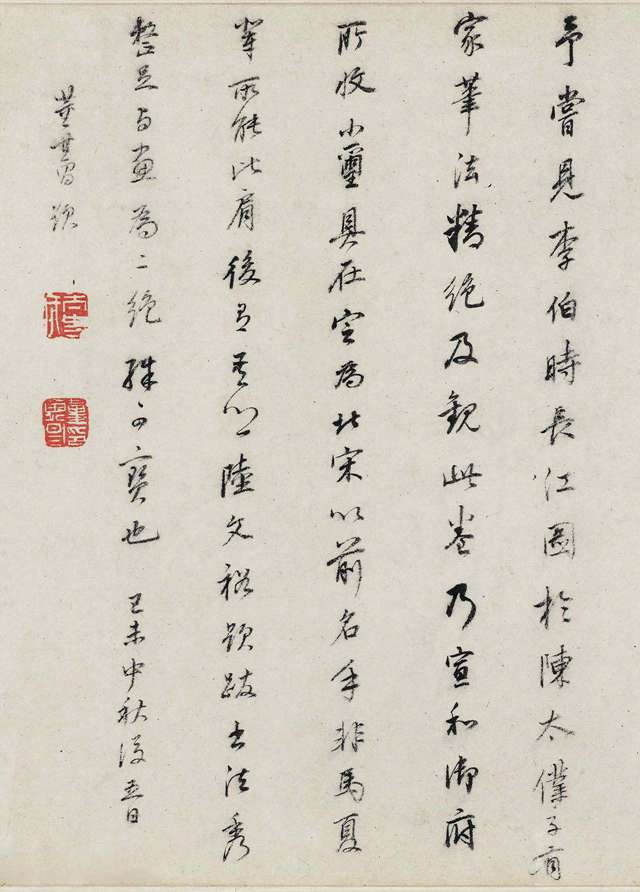 予嘗見李伯時長江圖於陳太僕子有
家筆法精絕及觀此卷乃宣和御府
所收小璽具在定為北宋以前名手非馬夏
輩所能比肩後有吾鄉陸文裕題跋書法秀
整足與畫為二絕殊可寶也 己未中秋後五日
董其昌題